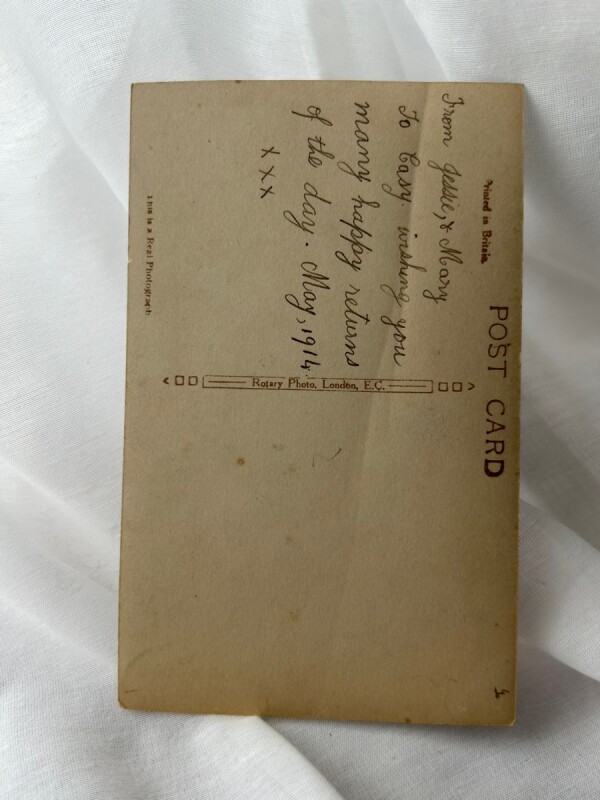 POST CARD
Printed in Britain.
From Jessie, & Mary
To Casy. wishing you
many happy returns
of the day. May, 1914.
x x x
Rotary Photo, London, E.C.
This is a Real Photograph